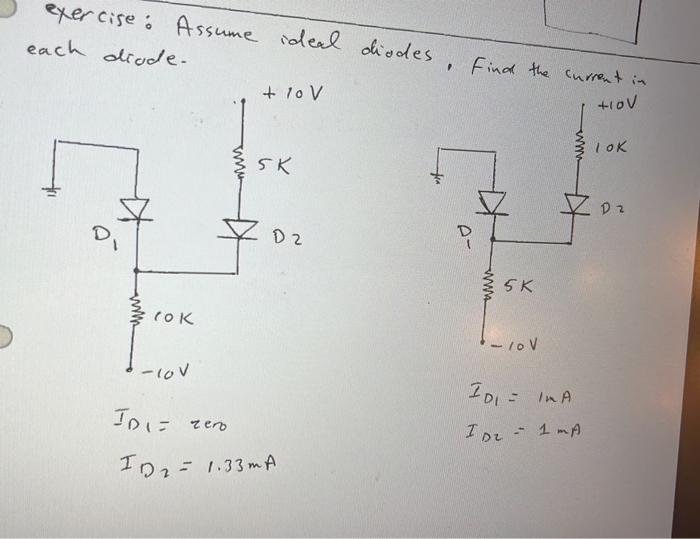 exercise: Assume ideal diodes, Find the current in
each diode.
+10V
5K
D1
D2
10K
-10V
ID1 = zero
ID2 = 1.33mA
+10V
10K
D2
D1
5K
-10V
ID1 = 1mA
ID2 = 1mA